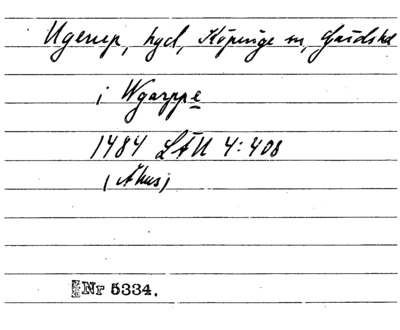 Ugerup, hgd, Köpinge sn, Gärds hd
i Wgarppe
1484 LÄU 4:408
(Åhus)
Nr 5334.